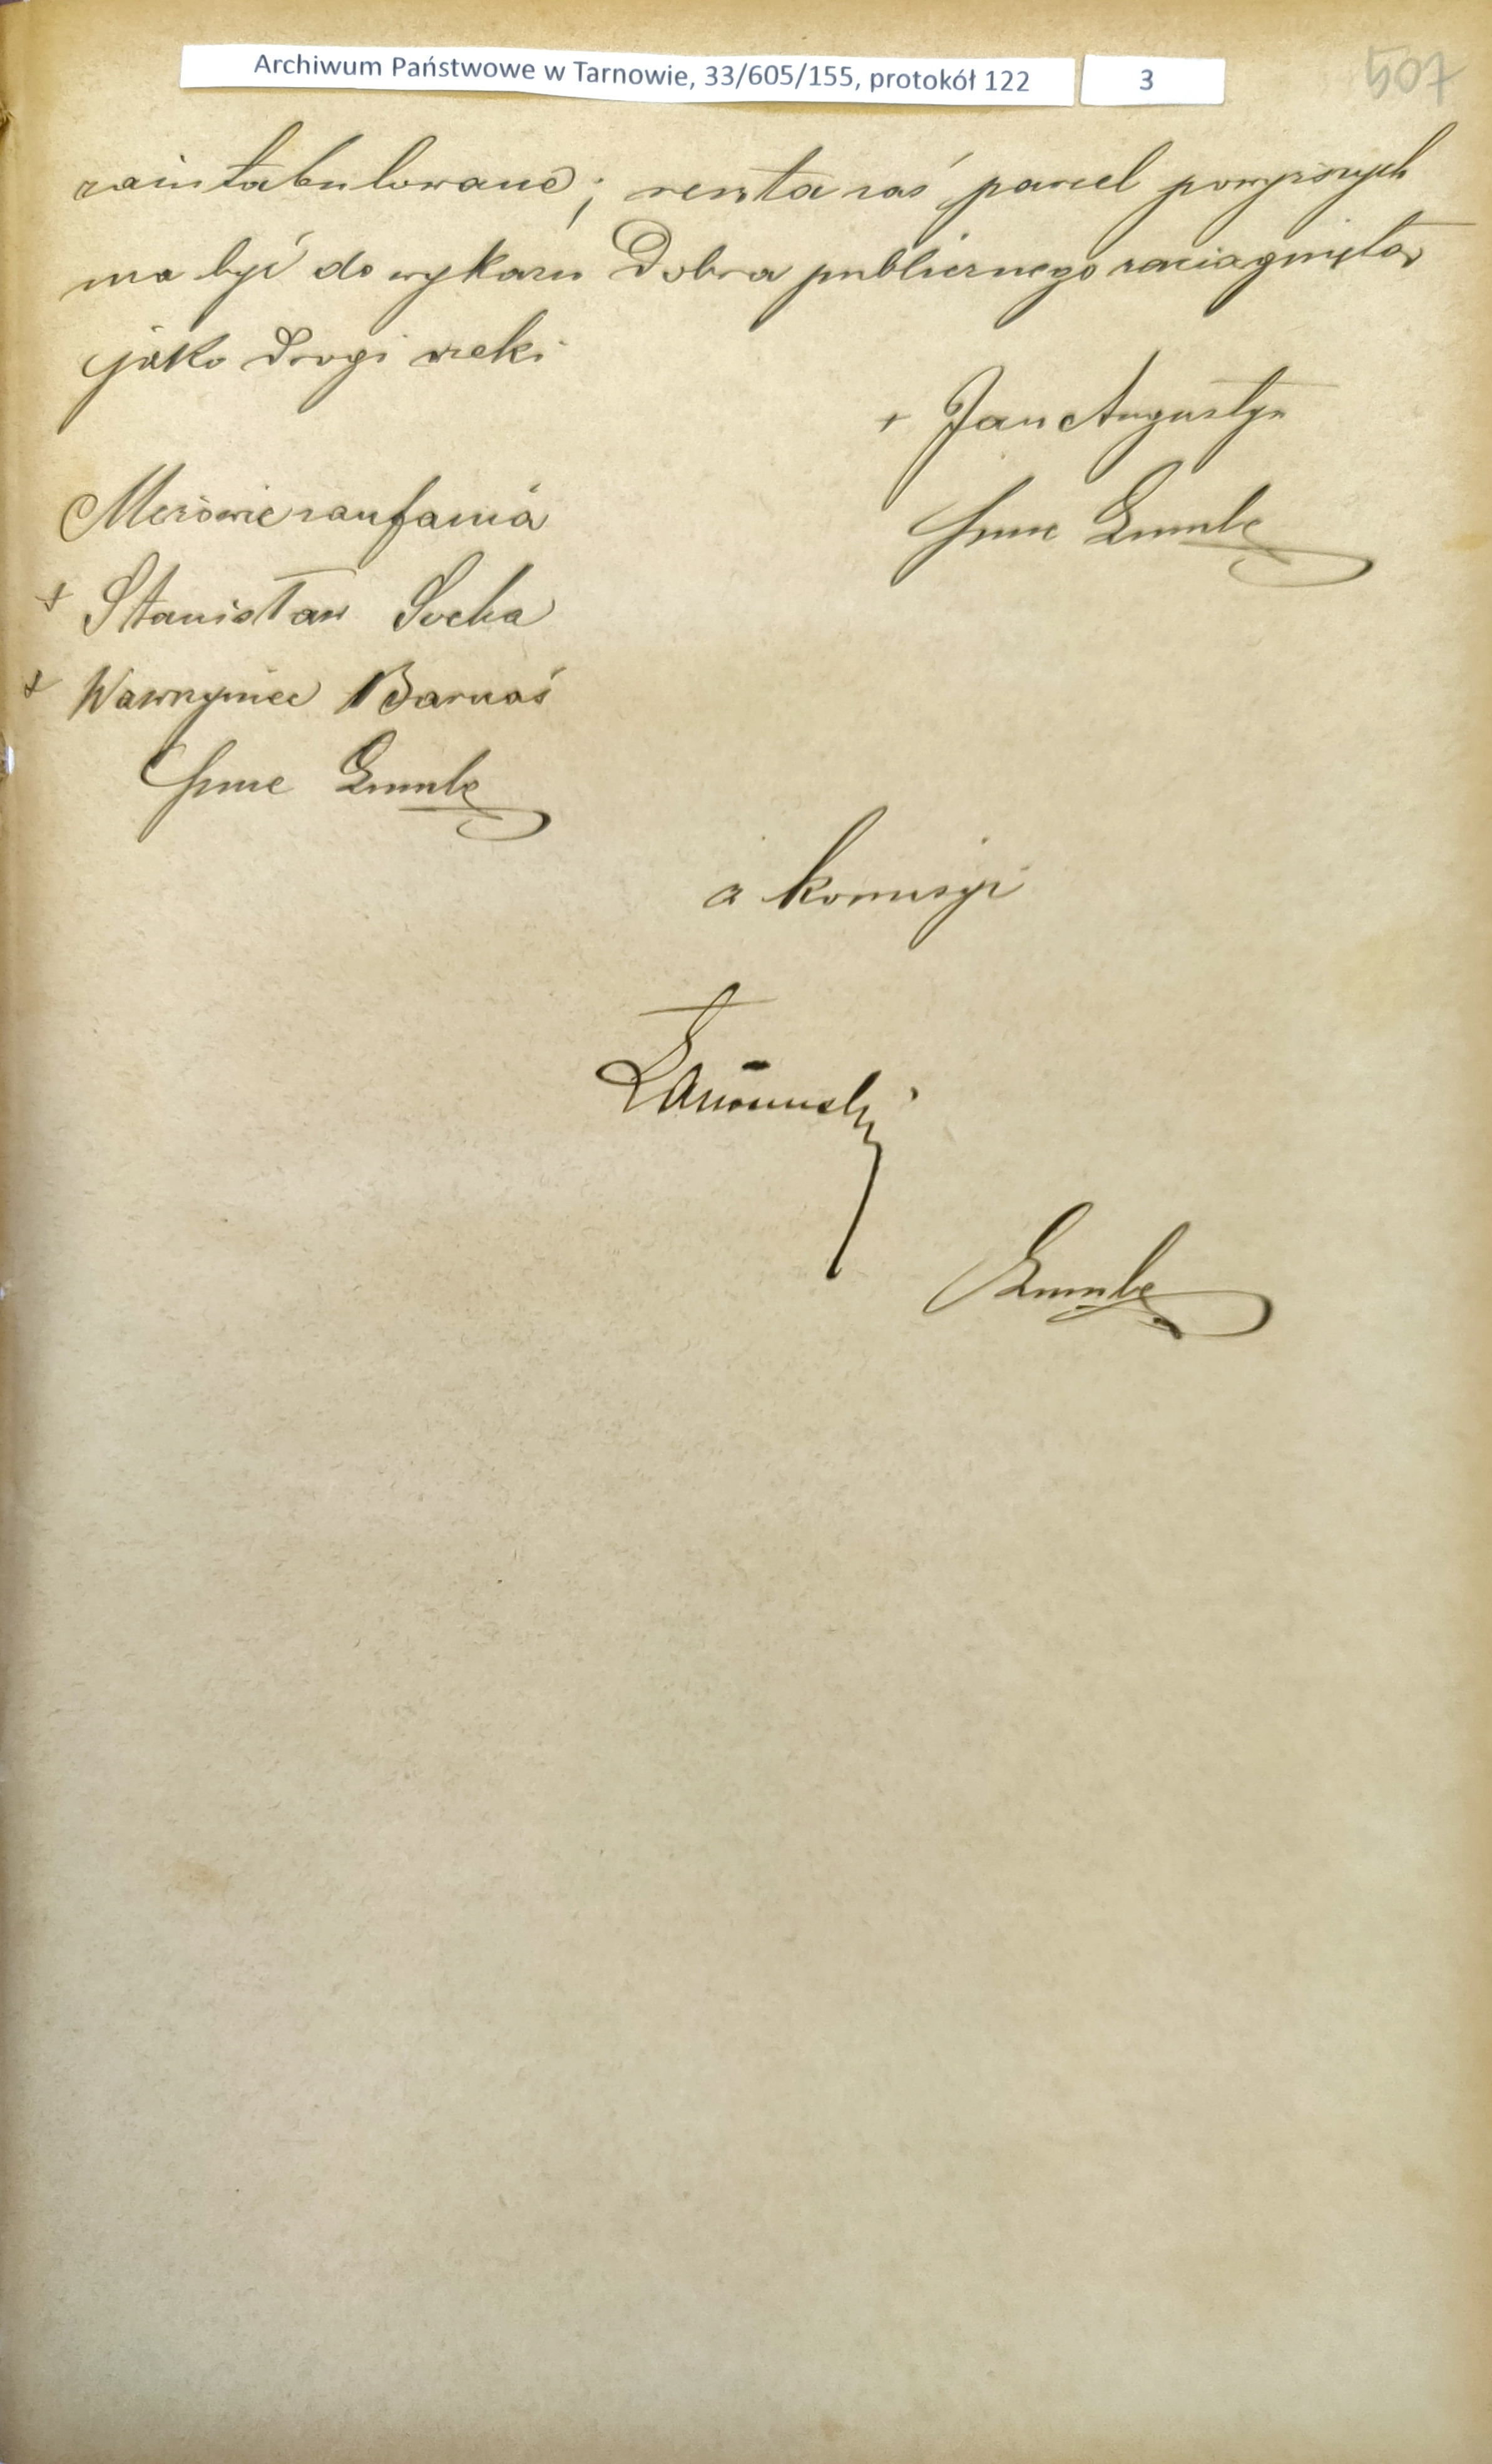 Archiwum Państwowe w Tarnowie, 33/605/155, protokół 122 3
507
zaintabulowane; reszta zaś parcel powyższych
ma być do wykazu Dobra publicznego zaciągnięta,
jako drogi rzeki
+ Jan Augustyn
Mężowie zaufania
+ Stanisław Socha
+ Wawrzyniec Barnaś
z komisyi